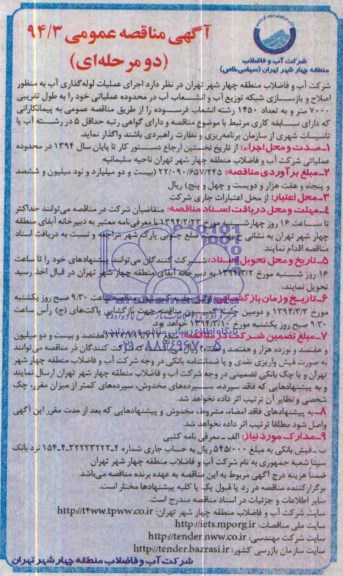 شرکت آب و فاضلاب
منطقه چهار شهر تهران (سهامی خاص)
آگهی مناقصه عمومی ۹۴/۳
(دو مرحله‌ای)
شرکت آب و فاضلاب منطقه چهار شهر تهران در نظر دارد اجرای عملیات لوله‌گذاری آب به منظور
اصلاح و بازسازی شبکه توزیع آب و انشعاب آب در محدوده عملیاتی خود را به طول تقریبی
۷۰۰۰ متر و به تعداد ۱۴۵۰ رشته انشعاب فرسوده را از طریق مناقصه عمومی به پیمانکارانی
که دارای سابقه کاری مرتبط با موضوع مناقصه و دارای گواهی رتبه حداقل ۵ در رشته آب یا
تاسیسات شهری از سازمان برنامه‌ریزی و نظارت راهبردی باشند واگذار نماید
۱-مدت و محل اجراء: از تاریخ نخستین ارجاع دستور کار تا پایان سال ۱۳۹۴ در محدوده
عملیاتی شرکت آب و فاضلاب منطقه چهار شهر تهران ناحیه سلیمانیه
۲-مبلغ برآوردی مناقصه: ۲۲/۰۹۰/۶۵۷/۲۴۵ (بیست و دو میلیارد و نود میلیون و ششصد
و پنجاه و هفت هزار و دویست و چهل و پنج) ریال
۳-محل اعتبار: از محل اعتبارات جاری شرکت
۴-مهلت و محل دریافت اسناد مناقصه: متقاضیان شرکت در مناقصه می‌توانند حداکثر
تا ساعت ۱۶ روز چهارشنبه مورخ ۱۳۹۴/۲/۲۳ با معرفی‌نامه معتبر به دبیرخانه آبفای منطقه
چهار شهر تهران به نشانی ضلع جنوبی پارک شهر مراجعه و نسبت به دریافت اسناد
مناقصه اقدام نمایند
۵-تاریخ و محل تحویل اسناد: شرکت کنندگان می‌توانند پیشنهادهای خود را تا ساعت
۱۶ روز شنبه مورخ ۱۳۹۴/۳/۲ به دبیرخانه آبفای منطقه چهار شهر تهران در قبال اخذ رسید
تحویل نمایند.
۶-تاریخ و زمان بازگشایی ساعت ۹:۳۰ صبح روز یکشنبه
مورخ ۱۳۹۴/۳/۳ و دومین جلسه کمیسیون مناقصه جهت بازگشایی پاکت‌های (ج) رأس ساعت
۹:۳۰ صبح روز یکشنبه مورخ ۱۳۹۴/۳/۱۰ خواهد بود
۷-مبلغ تضمین شرکت در مناقصه: هفتصد و بیست و دو میلیون
و هفتصد و نوزده هزار و هفتصد و ریال که شرکت کنندگان در مناقصه می‌توانند
به صورت فیش واریزی نقدی و یا ضمانت‌نامه بانکی در وجه شرکت آب و فاضلاب منطقه چهار شهر
تهران و یا چک بانکی تضمینی در وجه شرکت آب و فاضلاب منطقه چهار شهر تهران ارسال نمایند
و به پیشنهادهایی که فاقد سپرده، سپرده‌های مخدوش، سپرده‌های کمتر از میزان مقرر، چک
شخصی و نظایر آن ترتیب اثر داده نخواهد شد.
۸-به پیشنهادهای فاقد امضاء، مشروط، مخدوش و پیشنهادهایی که بعد از مدت مقرر این آگهی
واصل شود مطلقا ترتیب اثر داده نخواهد شد.
۹-مدارک مورد نیاز: الف-معرفی نامه کتبی
ب-فیش بانکی به مبلغ ۵۴۵/۰۰۰ ریال به حساب جاری شماره ۴-۳۲۲۲۳۲۲۲-۴-۱۵۴ نزد بانک
سینا شعبه جمهوری به نام شرکت آب و فاضلاب منطقه چهار شهر تهران
ضمنا هزینه درج آگهی مربوط به این مناقصه به عهده برنده مناقصه می‌باشد
برگزار کننده مناقصه در رد یا قبول یک یا کلیه پیشنهادها مختار است.
سایر اطلاعات و جزئیات در اسناد مناقصه مندرج است
سایت شرکت آب و فاضلاب منطقه چهار شهر تهران: http://t4ww.tpww.co.ir
سایت ملی مناقصات: http://iets.mporg.ir
سایت شرکت مهندسی: http://tender.nww.co.ir
سایت سازمان بازرسی کشور: http://tender.bazrasi.ir
شرکت آب و فاضلاب منطقه چهار شهر تهران